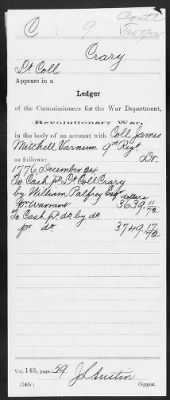 C 9 Contl Troops
Crary
Lt Coll
Appears in a
Ledger
of the Commissioners for the War Department,
Revolutionary War,
in the body of an account with Coll. James
Mitchell Varnum 9th Regt.
as follows: Dr.
1776 December
To Cash pd Lt Coll Crary
by William Palfrey Esqr dollars
pr Warrant 3639 11/72
To Cash pd do by do
pr do 3749 17/72
Vol. 143, page 29
J L Austin
(565) Copyist.